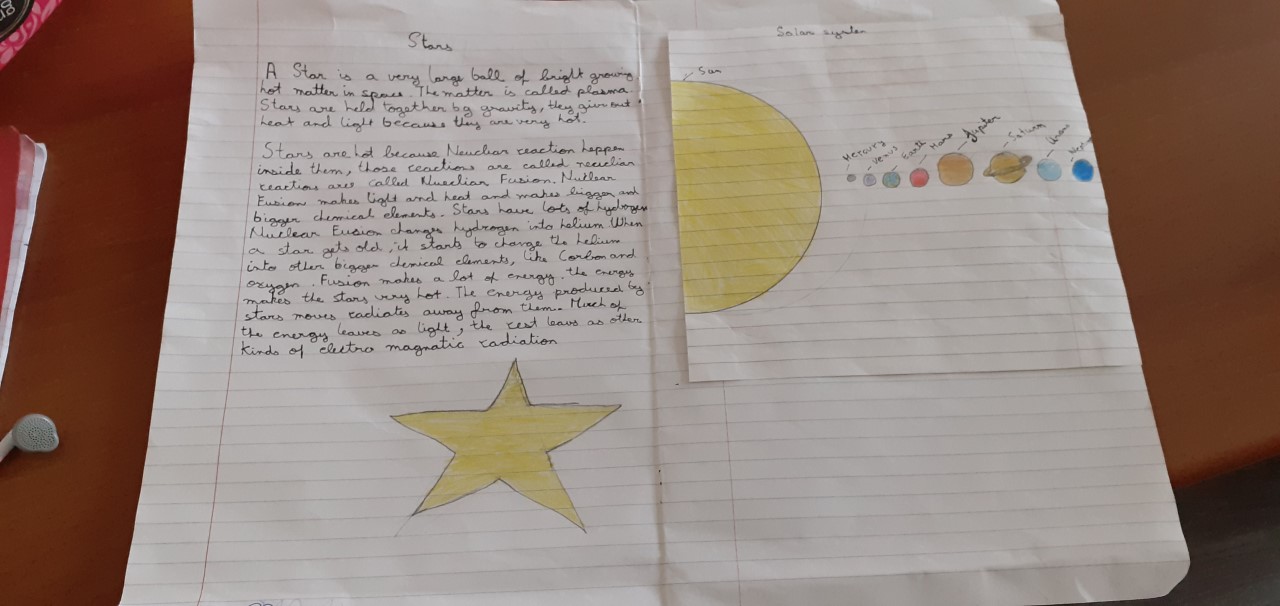 Stars
A Star is a very large ball of bright growing
hot matter in space. The matter is called plasma.
Stars are held together by gravity, they give out
heat and light because they are very hot.
Stars are hot because Neuclear reaction happen
inside them, those reactions are called neuclian
reactions are called Nueclian Fusion. Nutlear
Fusion makes light and heat and makes bigger and
bigger chemical elements. Stars have lots of hydrogen
Nuclear Fusion changes hydrogen into helium When
a star gets old, it starts to change the helium
into other bigger chmical elements, like Corbon and
oxygen. Fusion makes a lot of energy. the energy
makes the stars very hot. The energy produced by
stars moves radiates away from them. Much of
the energy leaves as light, the rest leavs as other
kinds of electro magnetic radiation
Solar system
Sun
Mercury
Venus
Earth
Mars
Jupiter
Saturn